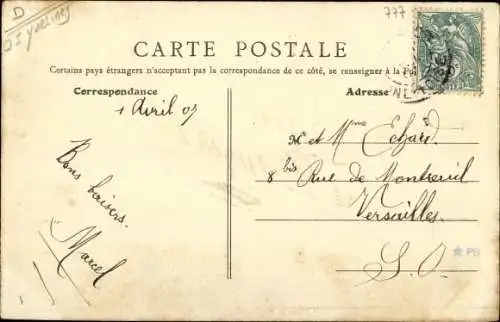 D
777
CARTE POSTALE
Certains pays étrangers n'acceptant pas la correspondance de ce côté, se renseigner à la
Correspondance
Adresse
1 Avril 07
Mr et Mme Echard
8 bis Rue de Montreuil
Versailles
S. O.
Bons baisers.
Marcel
PB